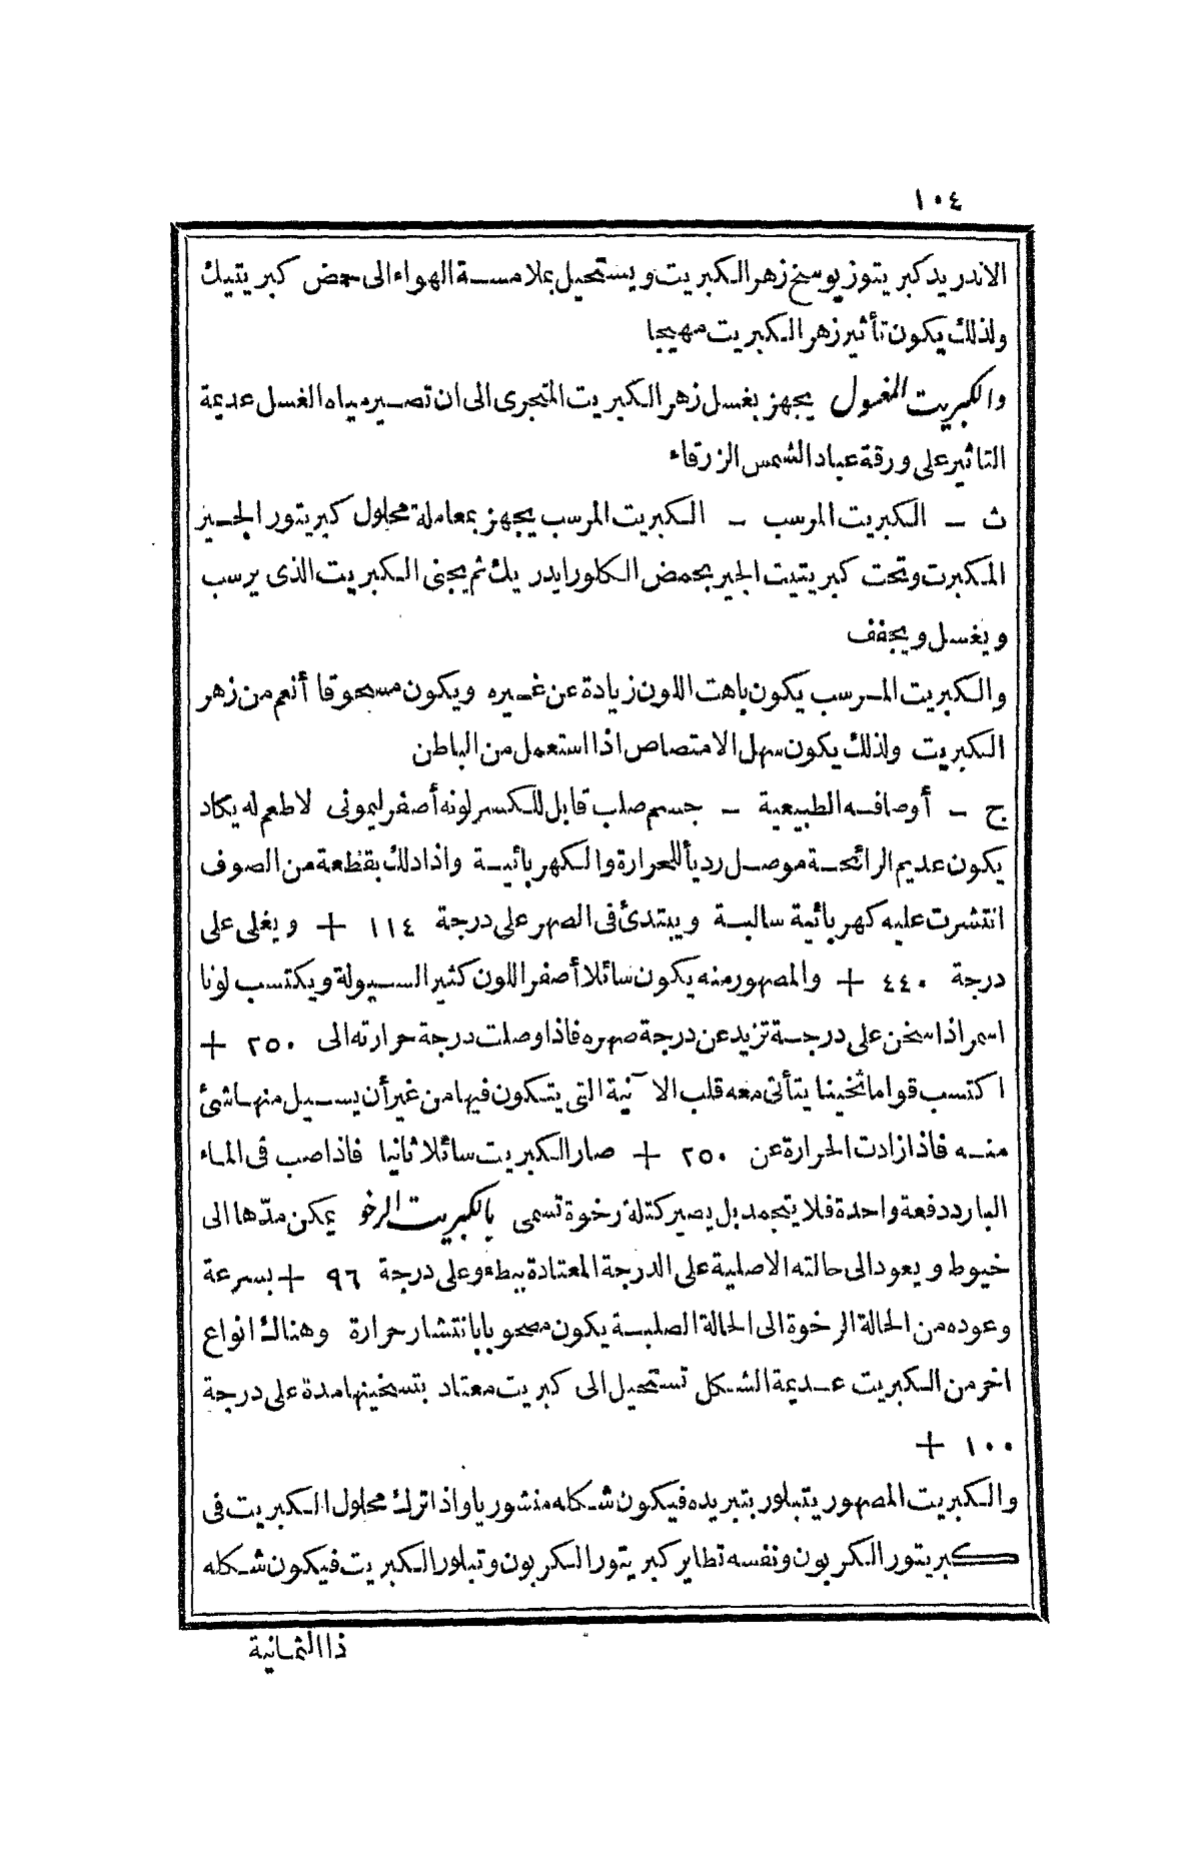 ١٠٤
الاندريد كبريتوز يوسخ زهر الكبريت ويستحيل بملامسة الهواء الى حمض كبريتيك
ولذلك يكون تأثير زهر الكبريت مهيجا
والكبريت المغسول يجهز بغسل زهر الكبريت المتجرى الى ان تصير مياه الغسل عديمة
التاثير على ورقة عباد الشمس الزرقاء
ث – الكبريت المرسب – الكبريت المرسب يجهز بمعاملة محلول كبريتور الجير
المكبرت وتحت كبريتيت الجير بحمض الكلورايدريك ثم يجنى الكبريت الذى يرسب
ويغسل ويجفف
والكبريت المرسب يكون باهت اللون زيادة عن غيره ويكون مسحوقا أنعم من زهر
الكبريت ولذلك يكون سهل الامتصاص اذا استعمل من الباطن
ج – أوصافه الطبيعية – جسم صلب قابل للكسر لونه أصفر ليمونى لا طعم له يكاد
يكون عديم الرائحة موصل ردىأ للحرارة والكهربائية واذا دلك بقطعة من الصوف
انتشرت عليه كهربائية سالبة ويبتدئ فى الصهر على درجة ١١٤ + ويغلى على
درجة ٤٤٠ + والمصهور منه يكون سائلا أصفر اللون كثير السيولة ويكتسب لونا
اسمر اذا سخن على درجة تزيد عن درجة صهره فاذا وصلت درجة حرارته الى ٢٥٠ +
اكتسب قواما ثخينا يتأتى معه قلب الآنية التى يتكون فيها من غير أن يسيل منها شئ
منه فاذا زادت الحرارة عن ٢٥٠ + صار الكبريت سائلا ثانيا فاذا صب فى الماء
البارد دفعة واحدة فلا يتجمد بل يصير كتلة رخوة تسمى بالكبريت الرخو يمكن مدّها الى
خيوط ويعود الى حالته الاصلية على الدرجة المعتادة ببطء وعلى درجة ٩٦ + بسرعة
وعوده من الحالة الرخوة الى الحالة الصلبة يكون مصحوبا بانتشار حرارة وهناك انواع
اخر من الكبريت عديمة الشكل تستحيل الى كبريت معتاد بتسخينها مدة على درجة
١٠٠ +
والكبريت المصهور يتبلور بتبريده فيكون شكله منشوريا واذا ترك محلول الكبريت فى
كبريتور الكربون ونفسه تطاير كبريتور الكربون وتبلور الكبريت فيكون شكله
ذا الثمانية